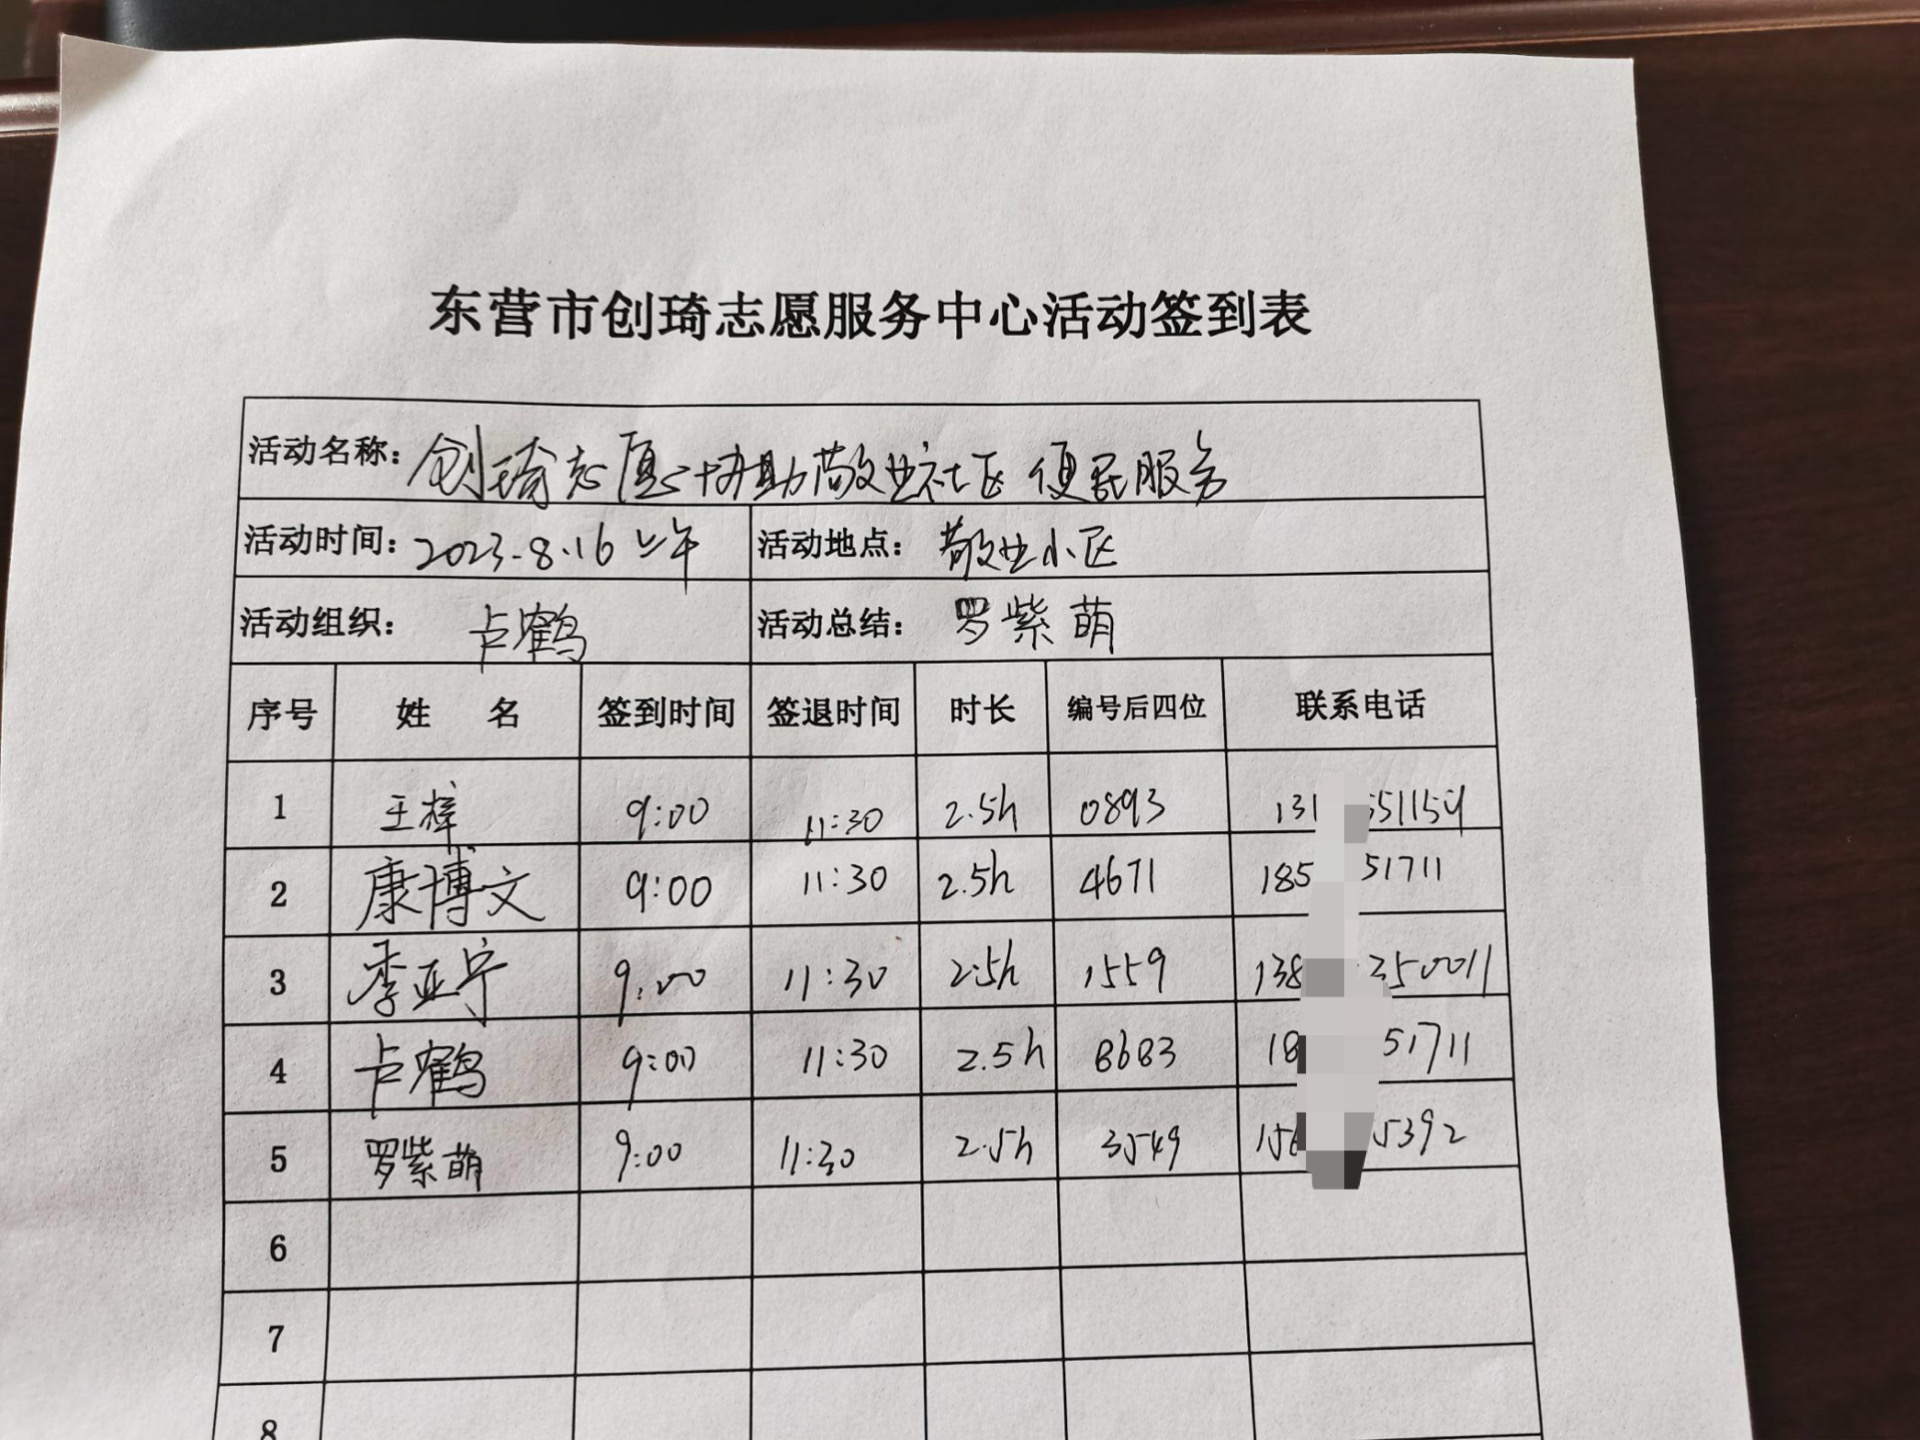 东营市创琦志愿服务中心活动签到表
活动名称：创琦志愿协助敬业社区便民服务
活动时间：2023.8.16 上午 活动地点：敬业小区
活动组织：卢鹤 活动总结：罗紫萌
序号 姓 名 签到时间 签退时间 时长 编号后四位 联系电话
1 王梓 9:00 11:30 2.5h 0893 131 551159
2 康博文 9:00 11:30 2.5h 4671 185 51711
3 李亚宁 9:00 11:30 2.5h 1559 138 350011
4 卢鹤 9:00 11:30 2.5h 8683 18 51711
5 罗紫萌 9:00 11:30 2.5h 3549 156 5392
6
7
8